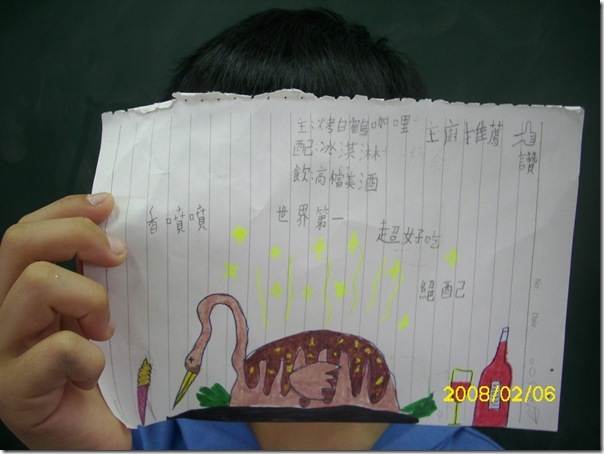 主:烤白咖哩
配:冰淇淋
飲:高檔美酒
主廚推薦
讚
香噴噴
世界第一
超好吃
絕配
2008/02/06